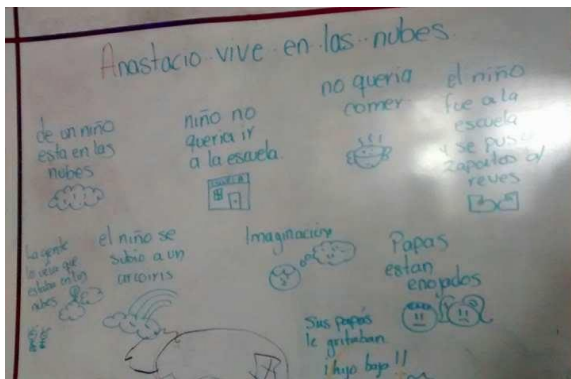 Anastacio vive en las nubes
de un niño
esta en las
nubes
niño no
queria ir
a la escuela.
ESCUELA
no queria
comer
el niño
fue a la
escuela
y se puso
zapatos al
reves
La gente
lo veia que
estaba en las
nubes
el niño se
subio a un
arcoiris
Imaginación
Papas
estan
enojados
Sus papás
le gritaban
¡hijo baja!!